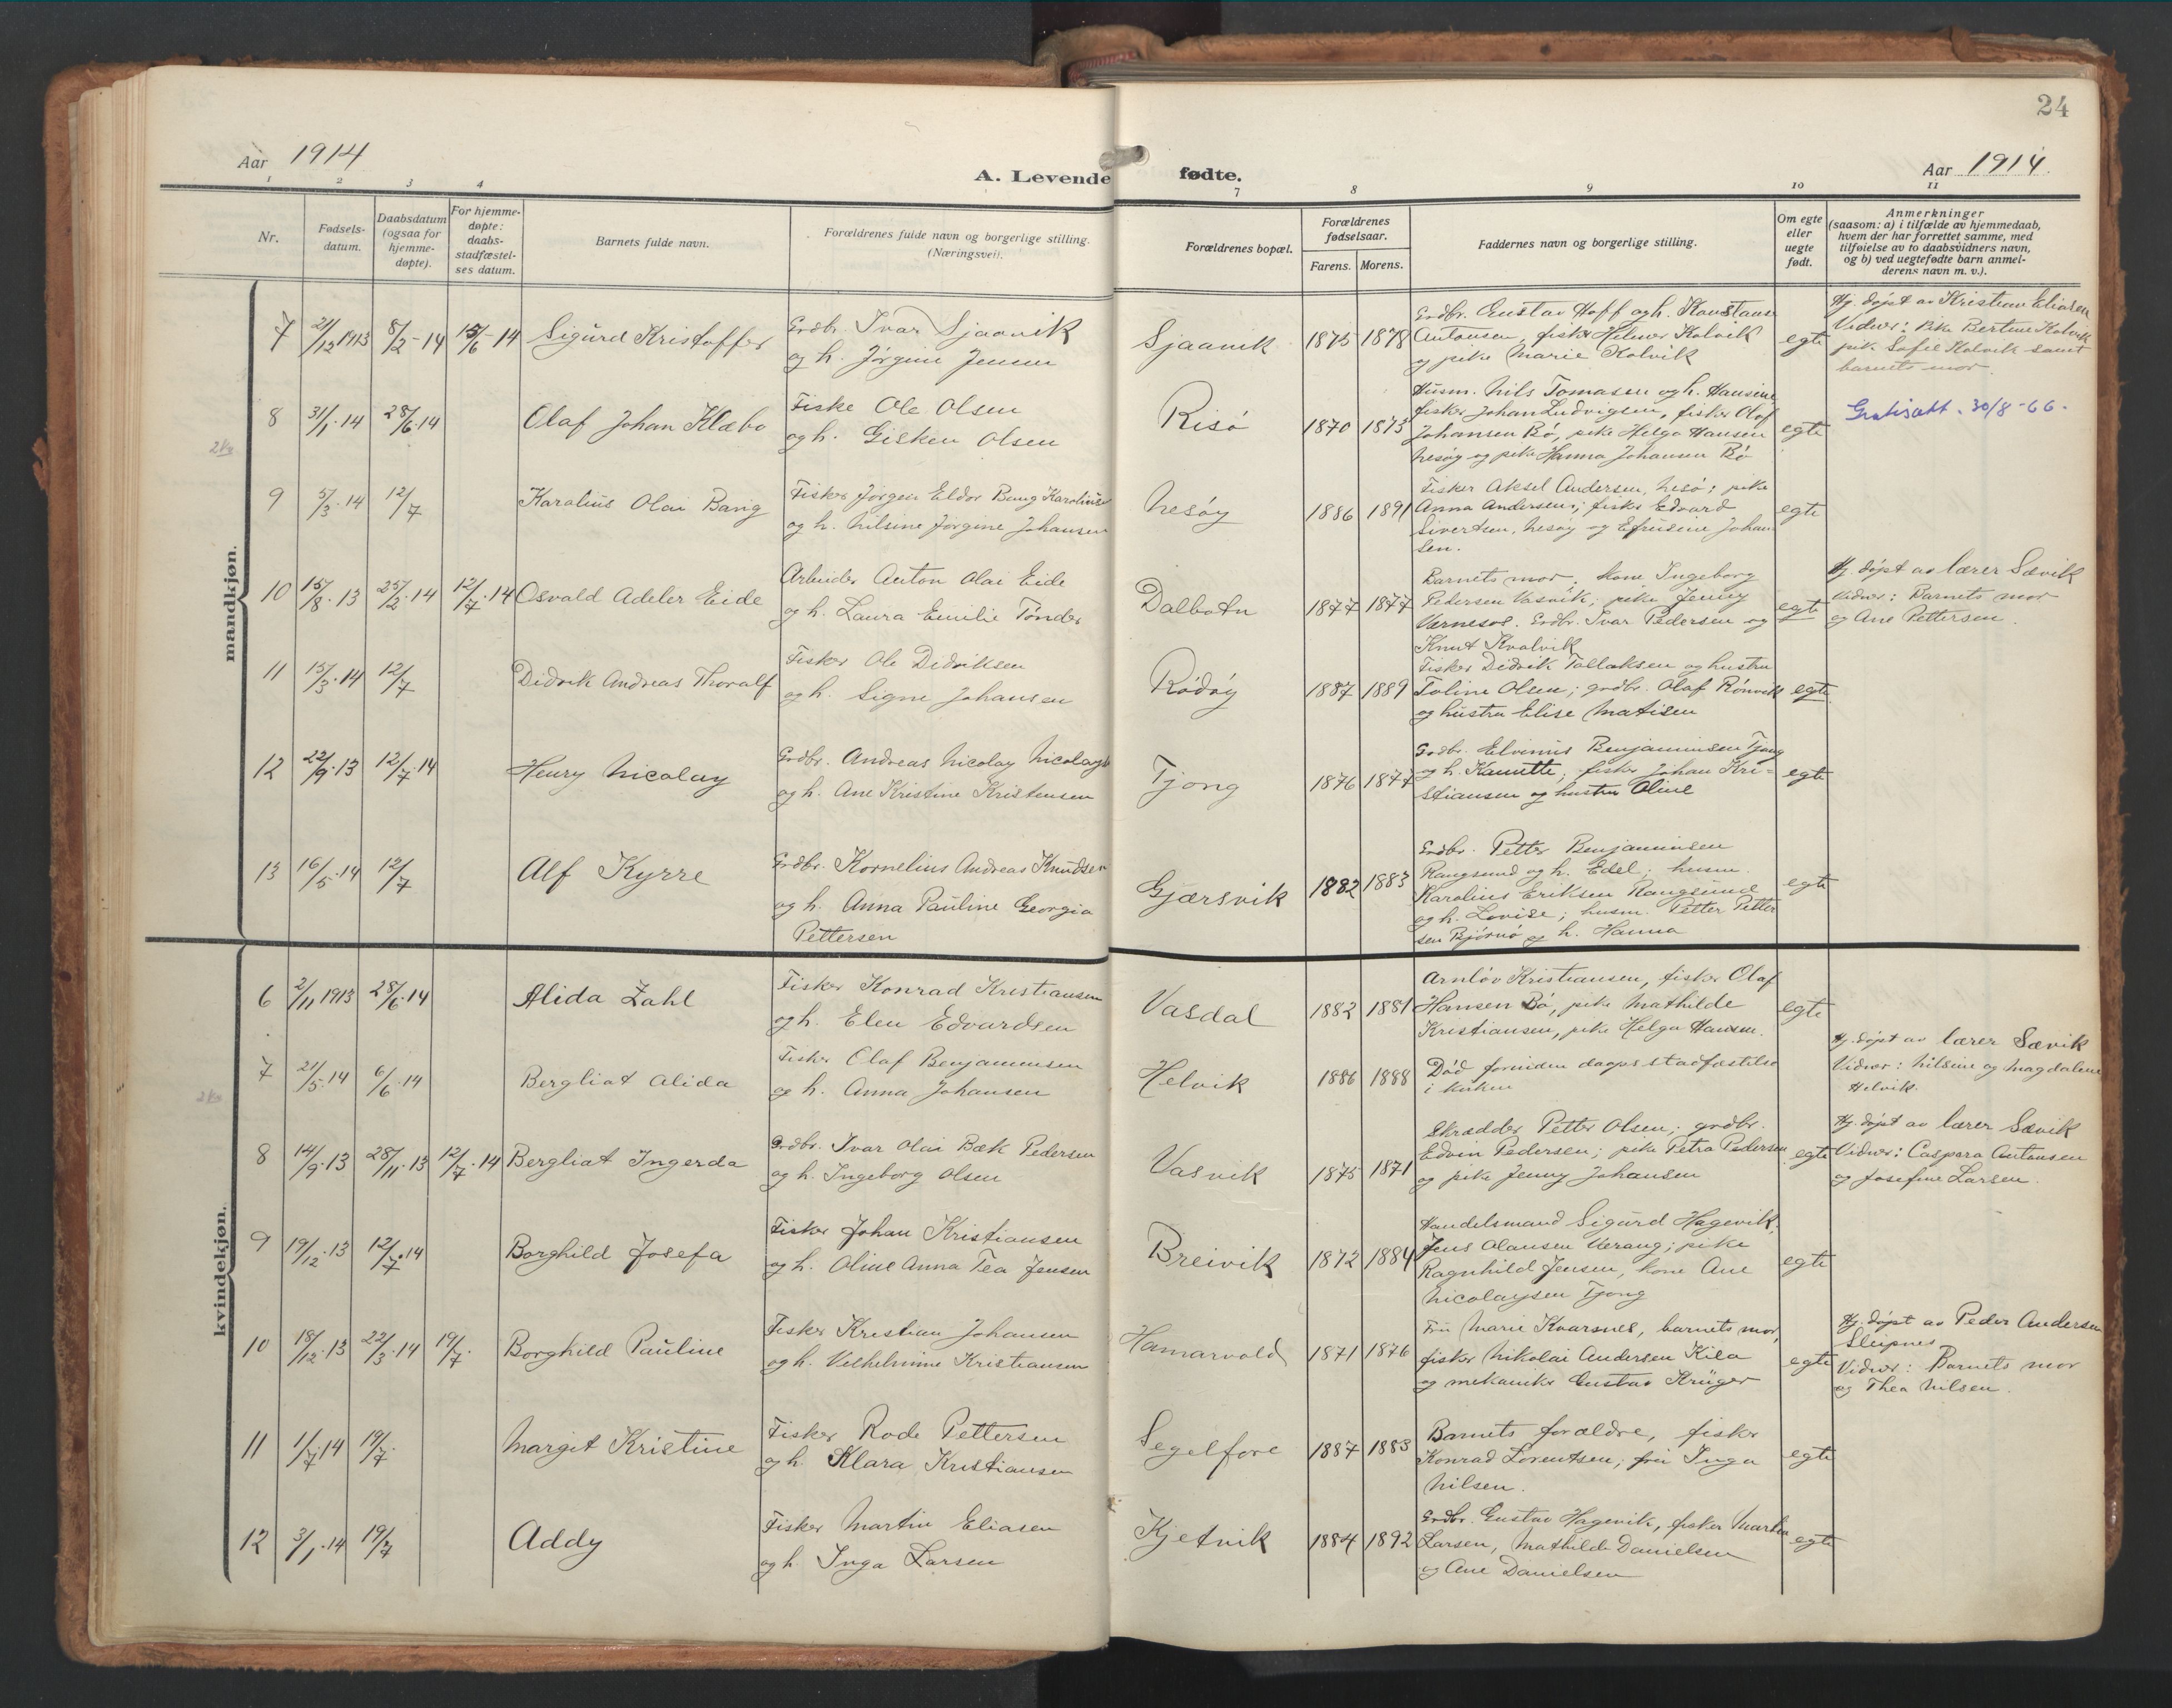 24
Aar 1914
A. Levende fødte.
Aar 1914.
1 2 3 4 7 8 9 10 11
Nr.
Fødsels-
datum.
Daabsdatum
(ogsaa for
hjemme-
døpte).
For hjemme-
døpte:
daabs-
stadfæstel-
ses datum.
Barnets fulde navn.
Forældrenes fulde navn og borgerlige stilling.
(Næringsvei).
Forældrenes bopæl.
Forældrenes
fødselsaar.
Farens. Morens.
Faddernes navn og borgerlige stilling.
Om egte
eller
uegte
født.
Anmerkninger
(saasom: a) i tilfælde av hjemmedaab,
hvem der har forrettet samme, med
tilføielse av to daabsvidners navn,
og b) ved uegtefødte barn anmel-
derens navn m. v.).
mandkjøn.
7 21/12 1913 8/2-14 15/6-14 Sigurd Kristoffer
Grdbr. Ivar Sjaavik
og h. Jørgine Jensen
Sjaavik 1875 1878
Grdbr. Gustav Hoff og h. Konstanse
Antonsen, fisker Helmer Kolvik
og pike Marie Kolvik
egte
Hj. døpt av Kristian Eliasen
Vidner: Pike Bertine Kolvik
pik. Sofie Kolvik samt
barnets mor.
8 31/1.14 28/6.14 Olaf Johan Klæbo
Fiske Ole Olsen
og h. Gisken Olsen
Risø 1870 1873
Husm. Nils Tomasen og h. Hansine
fisker Johan Ludvigsen, fisker Olaf
Johansen Bø, pike Helga Hansen
Nesøy og pike Hanna Johansen Bø
egte
30/8-66.
9 5/3.14 12/7 Karolius Olai Bang
Fisker Jørgen Eldor Bang Karoliuse
og h. Nilsine Jørgine Johansen
Nesøy 1886 1891
Fisker Aksel Andersen, Nesø; pike
Anna Andersen; fisker Edvard
Sivertsen, Nesøy og Efrusine Johan
sen.
egte
10 15/8.13 25/2.14 12/7.14 Osvald Adeler Eide
Arbeider Anton Olai Eide
og h. Laura Emilie Tønder
Dalbotn 1877 1877
Barnets mor, kone Ingeborg
Pedersen Vasvik; pike Jenny
Værnesos. Grdbr. Ivar Pedersen og
Knut Kvalvik
egte
Hj. døpt av lærer Sævik
Vidner: Barnets mor
og Ane Pettersen.
11 15/3.14 12/7 Didrik Andreas Thoralf
Fisker Ole Didriksen
og h. Signe Johansen
Rødøy 1887 1889
Fisker Didrik Tollaksen og hustru
Toline Olsen; grdbr. Olaf Rønvik
og hustru Elise Matisen
egte
12 22/9.13 12/7.14 Henry Nicolay
Grdbr. Andreas Nicolay Nicolays
og h. Ane Kristine Kristensen
Tjong 1876 1877
Grdbr. Elvinus Benjaminsen Tjong
og h. Kanutte; fisker Johan Kri-
stiansen og hustru Oline
egte
13 16/5.14 12/7 Alf Kyrre
Grdbr. Kornelius Andreas Knudsen
og h. Anna Pauline Georgia
Pettersen
Gjærsvik 1882 1883
Grdbr. Petter Benjaminsen
Rangsund og h. Edel; husm.
Karolius Eriksen Rangsund
og h. Lovise; husm. Petter Petter
sen Bjørnø og h. Hanna
egte
kvindekjøn.
6 2/11 1913 28/6.14 Alida Zahl
Fisker Konrad Kristiansen
og h. Elen Edvardsen
Vasdal 1882 1881
Arnlov Kristiansen, fisker Olaf
Hansen Bø, pike Mathilde
Kristiansen, pike Helga Hansen.
egte
7 21/5.14 6/6.14 Bergliot Alida
Fisker Olaf Benjaminsen
og h. Anna Johansen
Helvik 1886 1888
Død forinden daaps stadfæstelse
i kirken
Hj. døpt av lærer Sævik
Vidner: Nilsine og Magdalene
Helvik.
8 14/9.13 28/11.13 12/7.14 Bergliot Ingerda
Grdbr. Ivar Olai Bæk Pedersen
og h. Ingeborg Olsen
Vasvik 1875 1871
Skrædder Petter Olsen; grdbr.
Edvin Pedersen; pike Petra Pedersen
og pike Jenny Johansen
egte
Hj. døpt av lærer Sævik
Vidner: Caspara Antonsen
og Josefine Larsen.
9 19/12.13 12/7.14 Borghild Josefa
Fisker Johan Kristiansen
og h. Oline Anna Tea Jensen
Breivik 1872 1884
Handelsmand Sigurd Hagevik,
Jens Olausen Værang; pike
Ragnhild Jensen, kone Ane
Nicolaysen Tjong
egte
10 18/12.13 22/3.14 19/7. Borghild Pauline
Fisker Kristian Johansen
og h. Vilhelmine Kristiansen
Hamarvold 1871 1876
Fru Marie Kvarsnes, barnets mor,
fisker Nikolai Andersen Kila
og mekaniker Gustav Krüger
egte
Hj. døpt av Peder Andersen
Sleipnes
Vidner: Barnets mor
og Thea Nilsen.
11 1/7.14 19/7. Margit Kristine
Fisker Rode Pettersen
og h. Klara Kristiansen
Segelfore 1887 1883
Barnets forældre, fisker
Konrad Lorentsen; fru Inga
Nilsen.
egte
12 3/1.14 19/7 Addy
Fisker Martin Eliasen
og h. Inga Larsen
Kjetvik 1884 1892
Grdbr. Gustav Hagevik, fisker Martin
Larsen, Mathilde Danielsen
og Ane Danielsen
egte